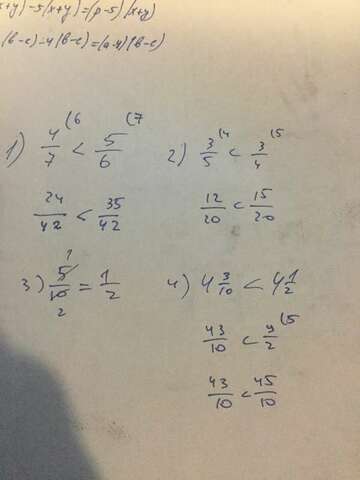 x+y)-5(x+y)=(p-5)(x+y)
(b-c)-4(b-c)=(a-4)(b-c)
1) 4/7 (6 < 5/6 (7
24/42 < 35/42
2) 3/5 (4 < 3/4 (5
12/20 < 15/20
3) 5/10 = 1/2
1
2
4) 4 3/10 < 4 1/2
43/10 < 9/2 (5
43/10 < 45/10